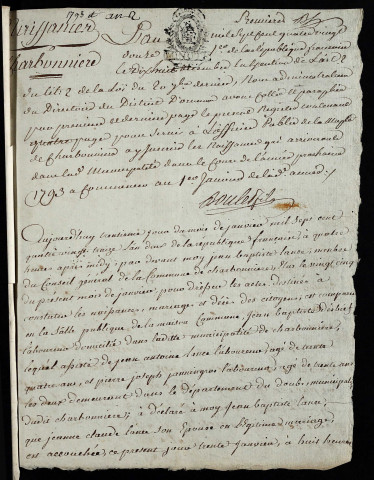 1793 et an 2
Naissances
Charbonnière
Premier
L'an mil sept cent quatre vingt
douze 1er de la République francaise
le dix huit Xbre en exécution de l'art 2
du tit 2 de la Loi du 20 7bre dernier, Nous administrateurs
du Directoire du District D'ornans avons Cotté et paraphé
par premier et dernier page le present Registre contenant
quatre pages pour servir à L'officier Public de la Munplté
de Charbonniere a y inscrire les Naissances qui arriveront
dans lad. Municipalité dans le Cours de l'année prochaine
1793 a Commencer au 1er Janvier de lad. année./.
Aujourd'huy trentieme jour du mois de janvier mil sept cent
quatre vingt treize l'an deux de la republique françoise à quatre
heures après midy, par devant moy jean baptiste lance, membre
du Conseil general de la Commune de charbonniere, élu le vingt cinq
du present mois de janvier pour dresser les actes destinés à
constater les naissances, mariages et décès des citoyens, est comparu
en la Salle publique de la maison Commune, jean baptiste
laboureur domicilié dans laditte municipalité de charbonniere,
lequel assisté de jean antoine lance laboureur, agé de trente
quatre ans, et pierre joseph laboureur, agé de trente ans
les deux demeurent dans le département du doubs, municipalité
dudit charbonniere, à déclaré à moy jean baptiste lance,
que jeanne claude lance son Epouse en légitime mariage,
est accouchée, ce present jour trente janvier, à huit heures